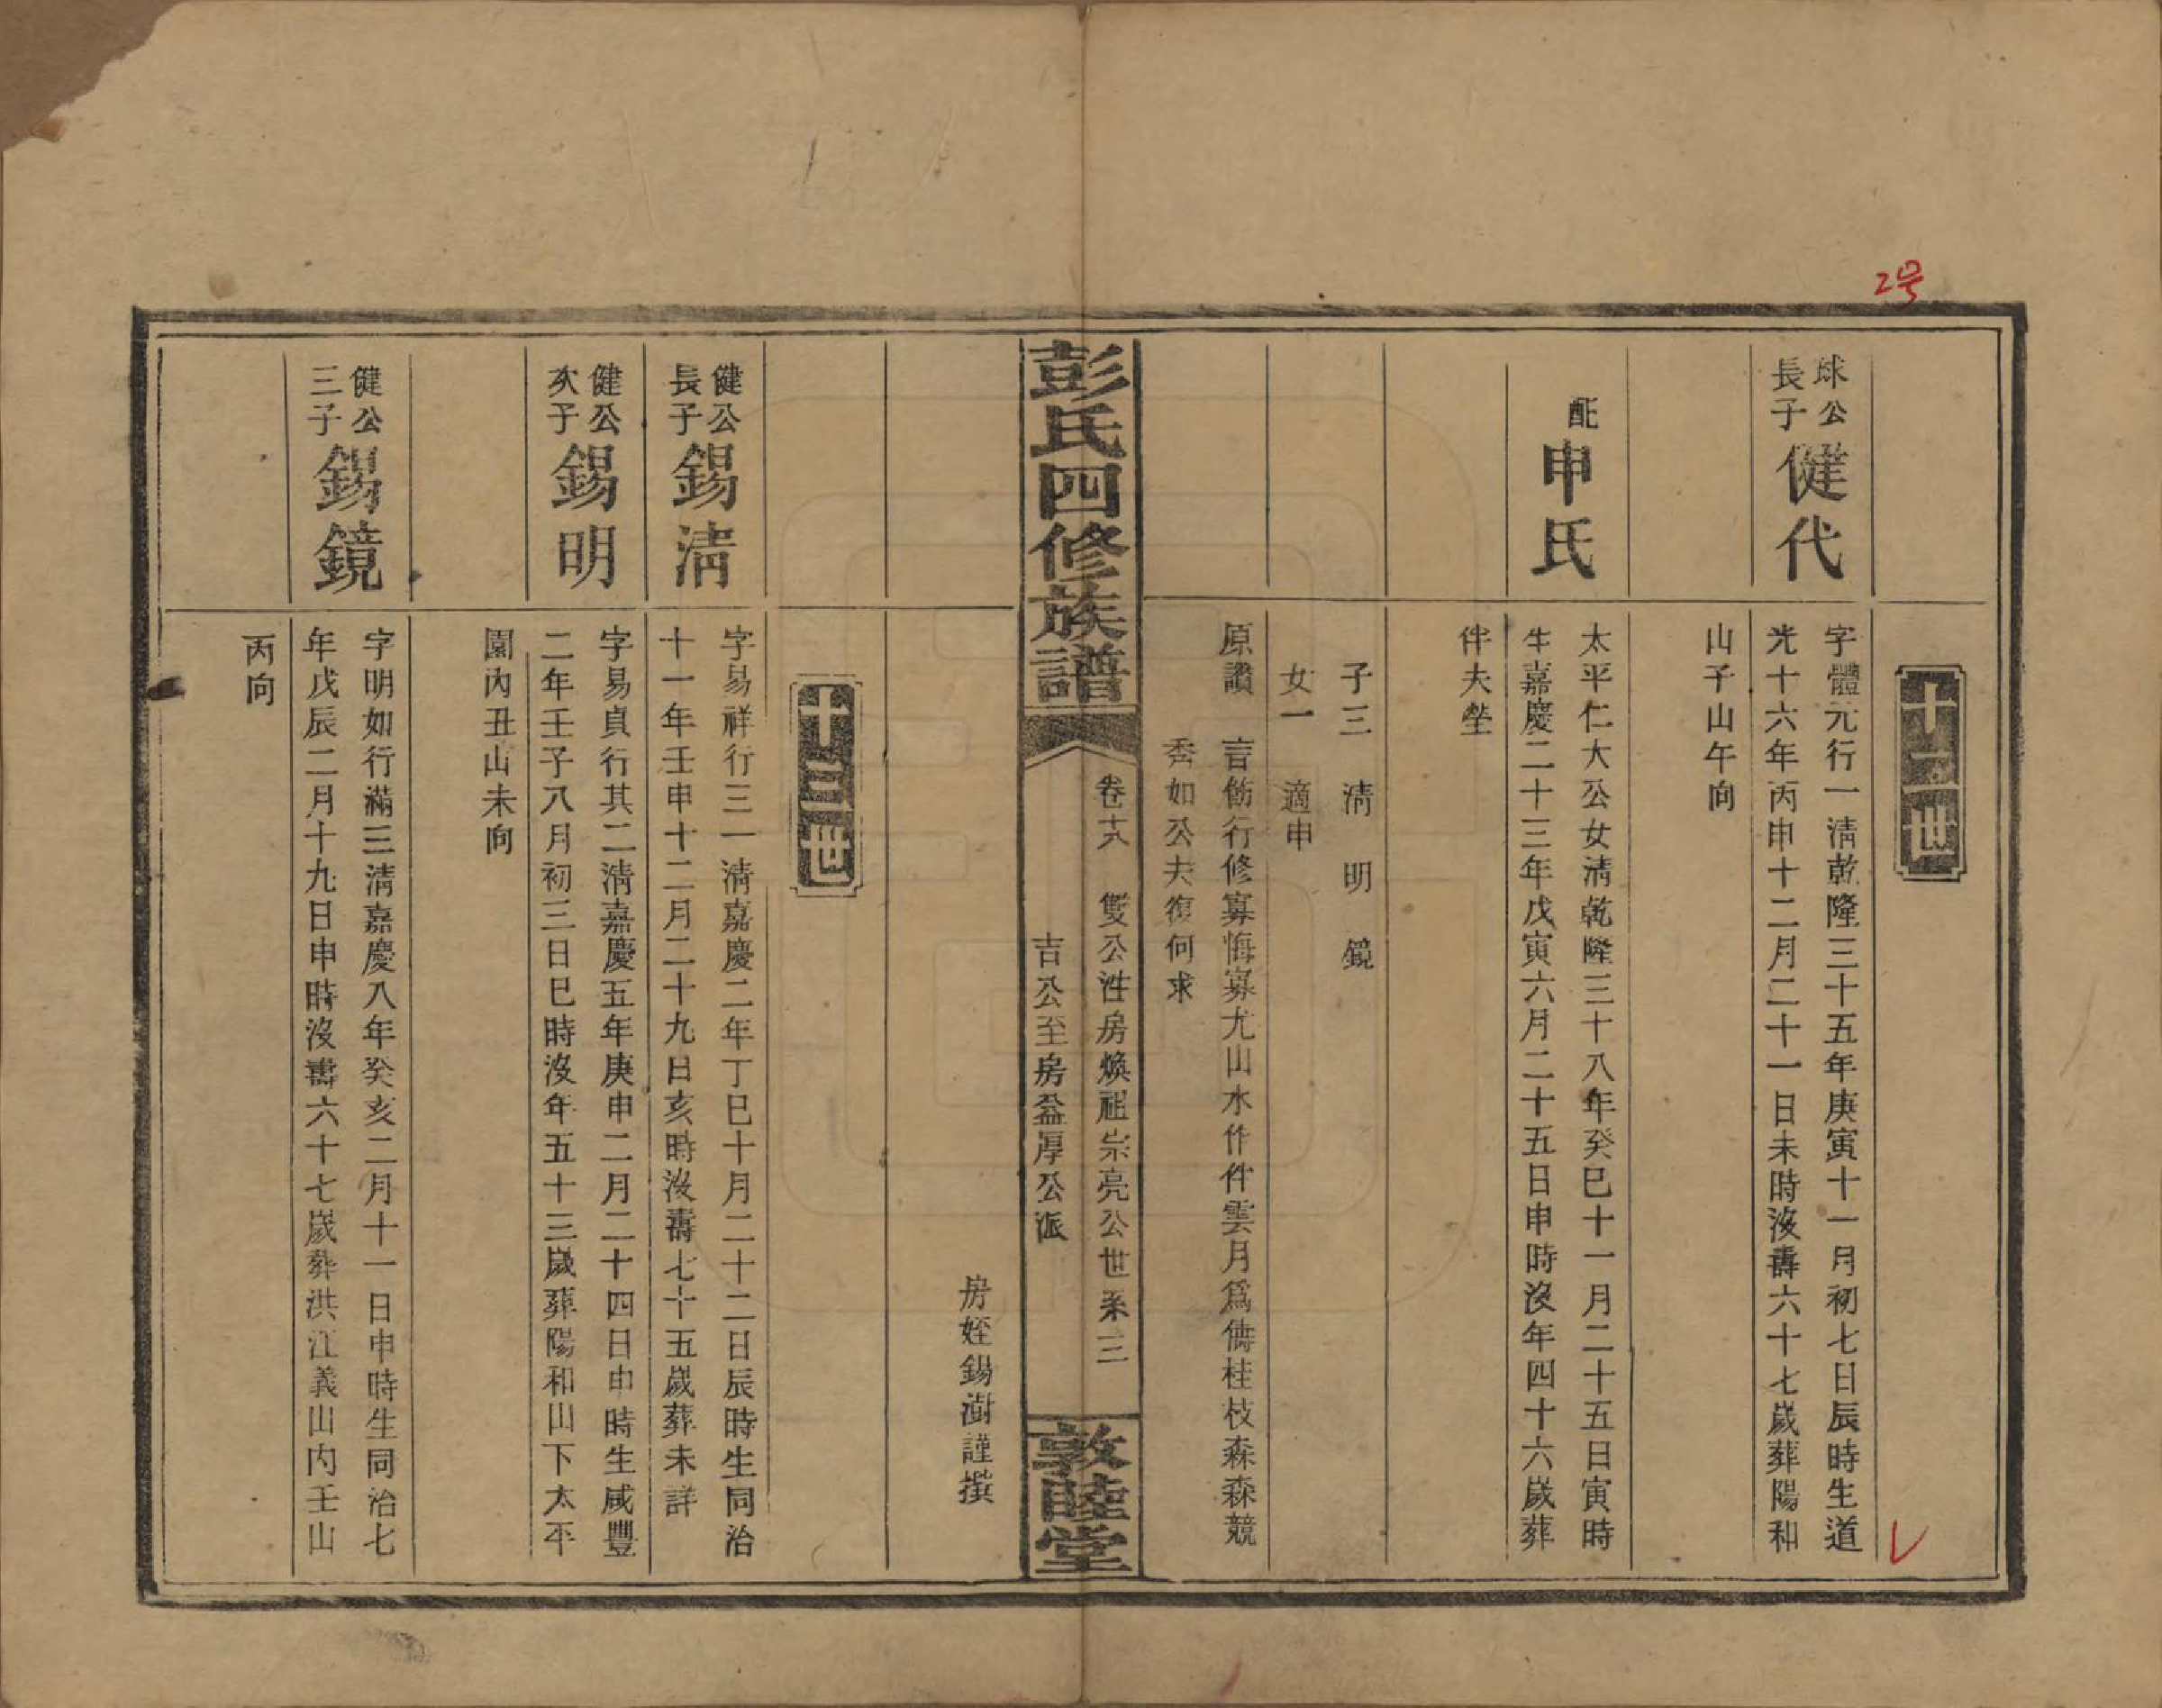 2号
十二世
球公
長子
健代
字體元行一清乾隆三十五年庚寅十一月初七日辰時生道
光十六年丙申十二月二十一日未時沒壽六十七歲葬陽和
山子山午向
配
申氏
太平仁大公女清乾隆三十八年癸巳十一月二十五日寅時
生嘉慶二十三年戊寅六月二十五日申時沒年四十六歲葬
伴夫塋
子三 清 明 鏡
女一 適申
原讚 言飭行修寡悔寡尤山水作伴雲月爲儔桂枝森森競
秀如公夫復何求
彭氏四修族譜
卷十八 雙公性房煥祖崇亮公世系三
吉公至房益厚公派
敦睦堂
房姪錫澍謹撰
十三世
健公
長子
錫清
字易祥行三一清嘉慶二年丁巳十月二十二日辰時生同治
十一年壬申十二月二十九日亥時沒壽七十五歲葬未詳
健公
次子
錫明
字易貞行其二清嘉慶五年庚申二月二十四日申時生咸豐
二年壬子八月初三日巳時沒年五十三歲葬陽和山下太平
園內丑山未向
健公
三子
錫鏡
字明如行滿三清嘉慶八年癸亥二月十一日申時生同治七
年戊辰二月十九日申時沒壽六十七歲葬洪江義山內壬山
丙向